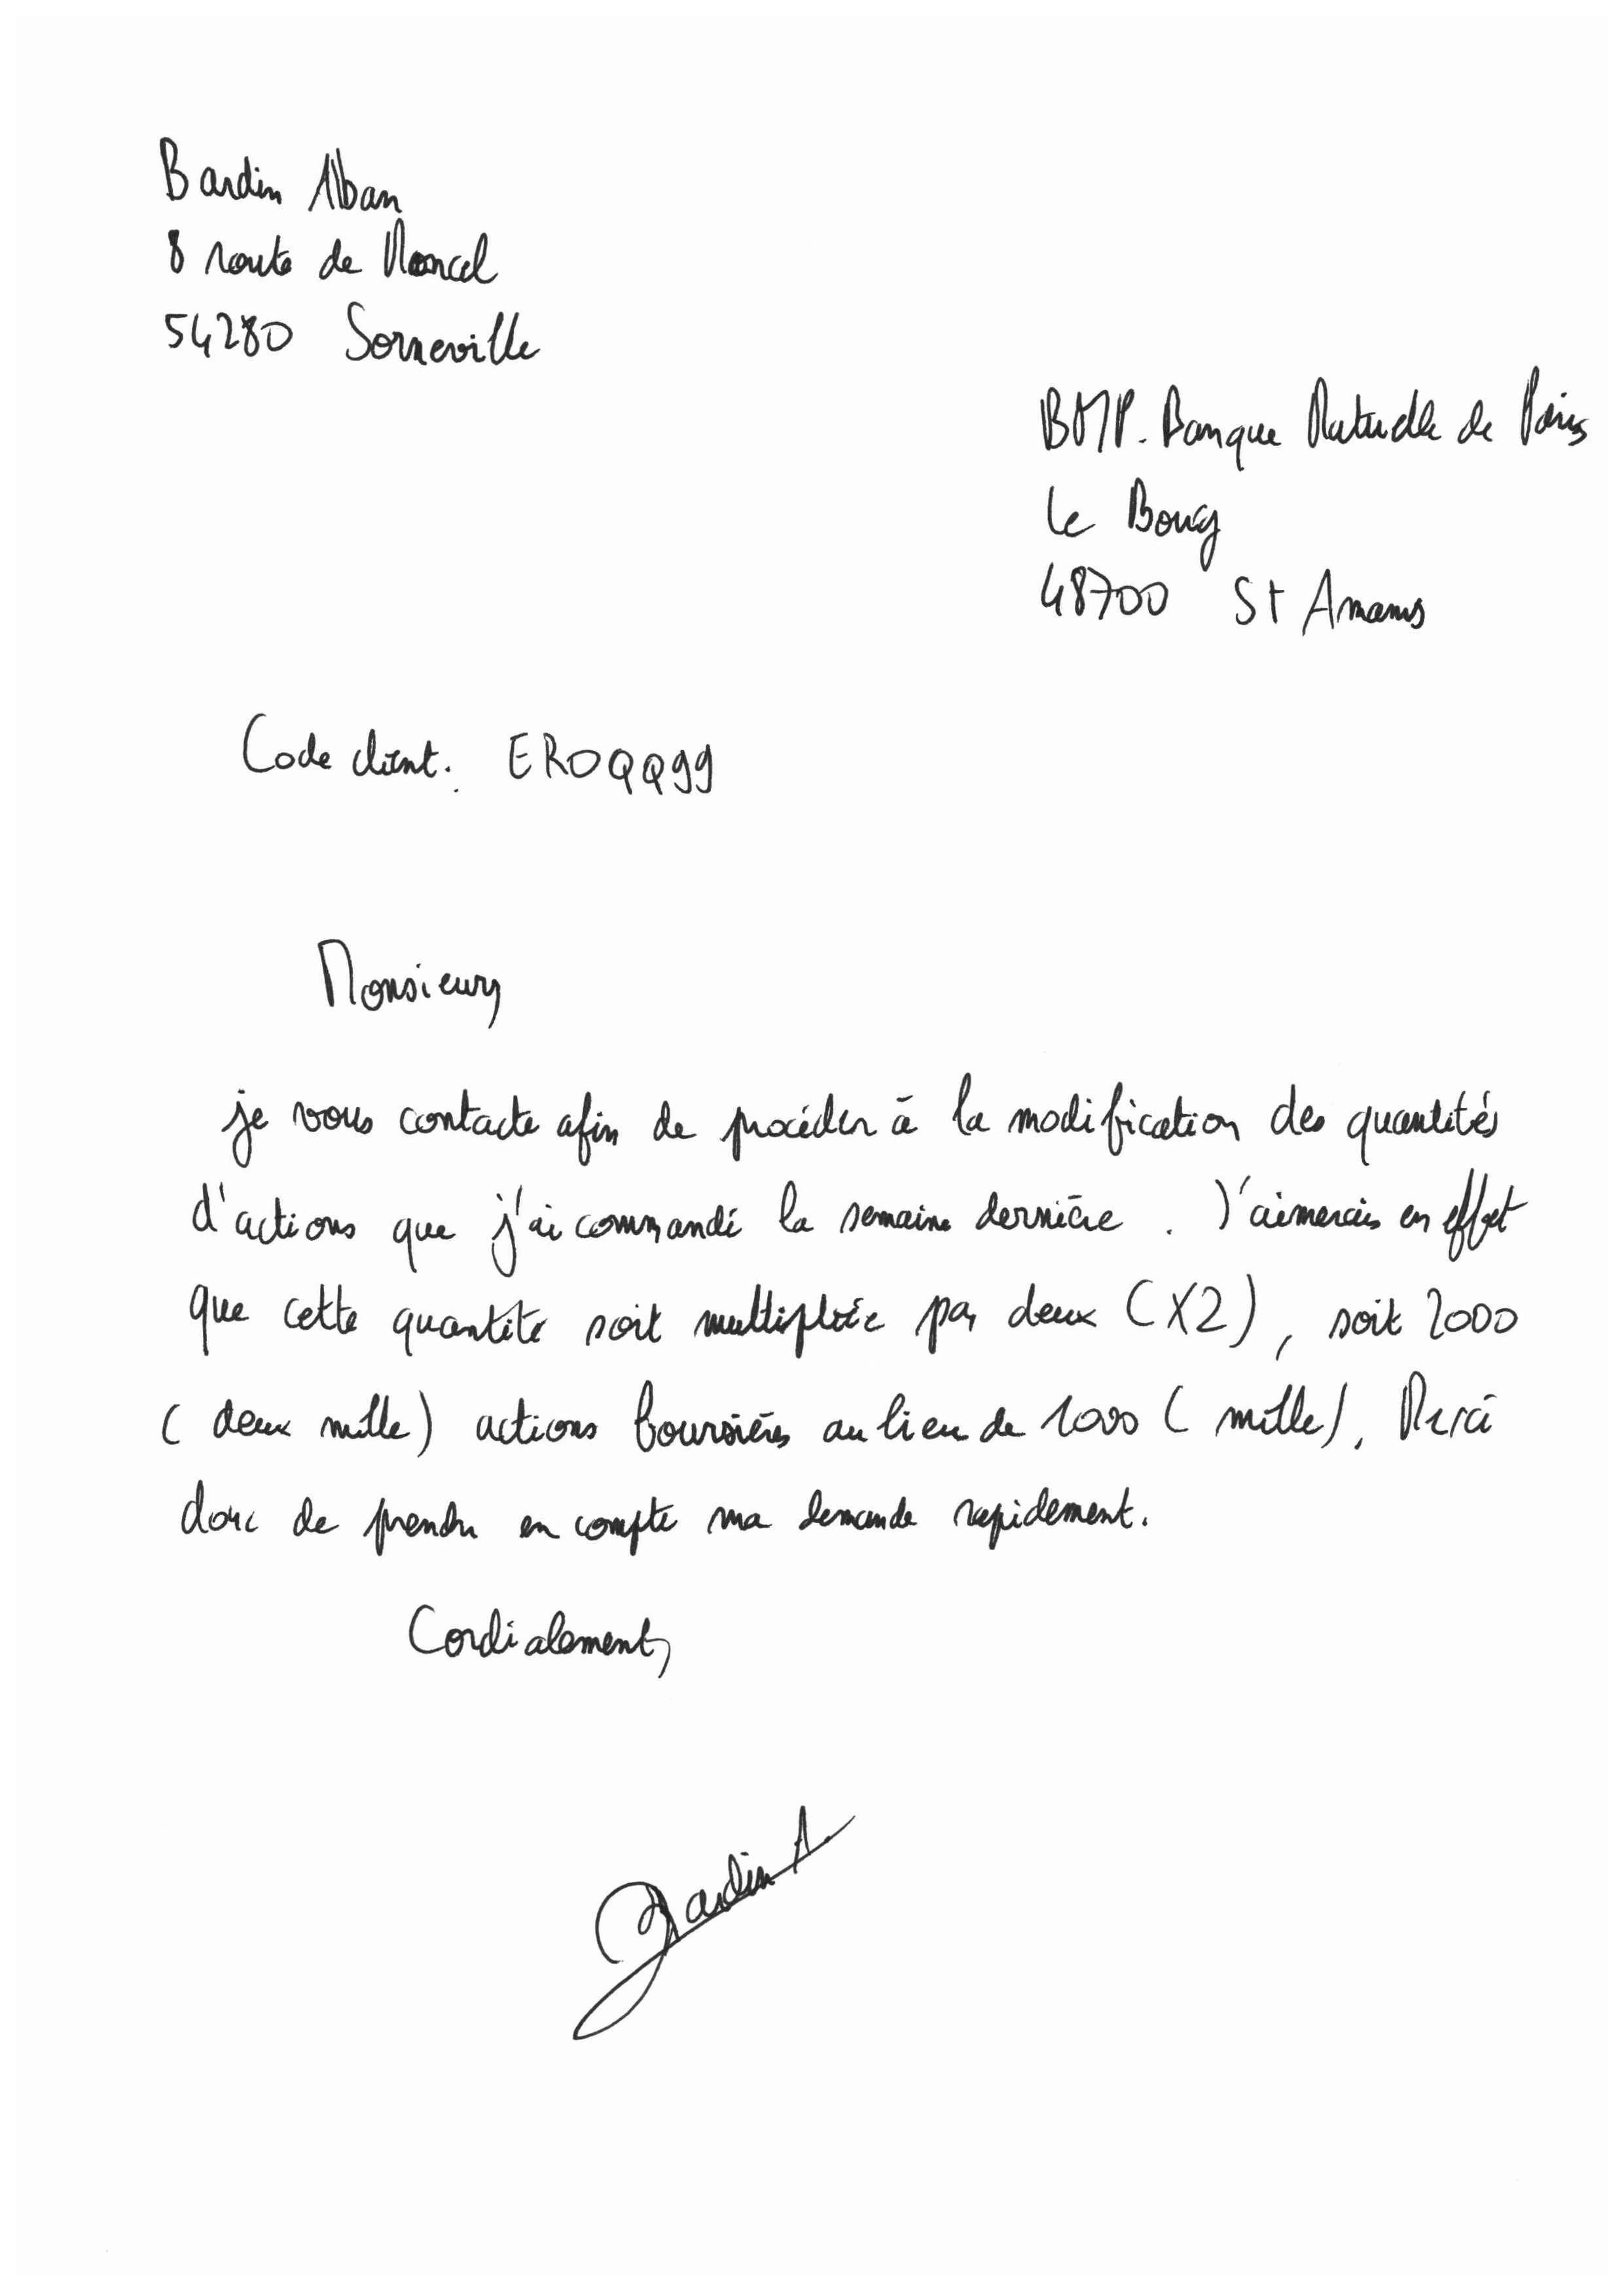 Bardin Alban
8 route de Moncel
54280 Sorneville
BMP. Banque Mutuelle de Paris
Le Bourg
48700 St Amans
Code client : EROQQ99
Monsieur,
je vous contacte afin de procéder à la modification des quantités
d'actions que j'ai commandé la semaine dernière. J'aimerais en effet
que cette quantité soit multipliée par deux (X2), soit 2000
(deux mille) actions boursières au lieu de 1000 (mille). Merci
donc de prendre en compte ma demande rapidement.
Cordialement,
Bardin A.